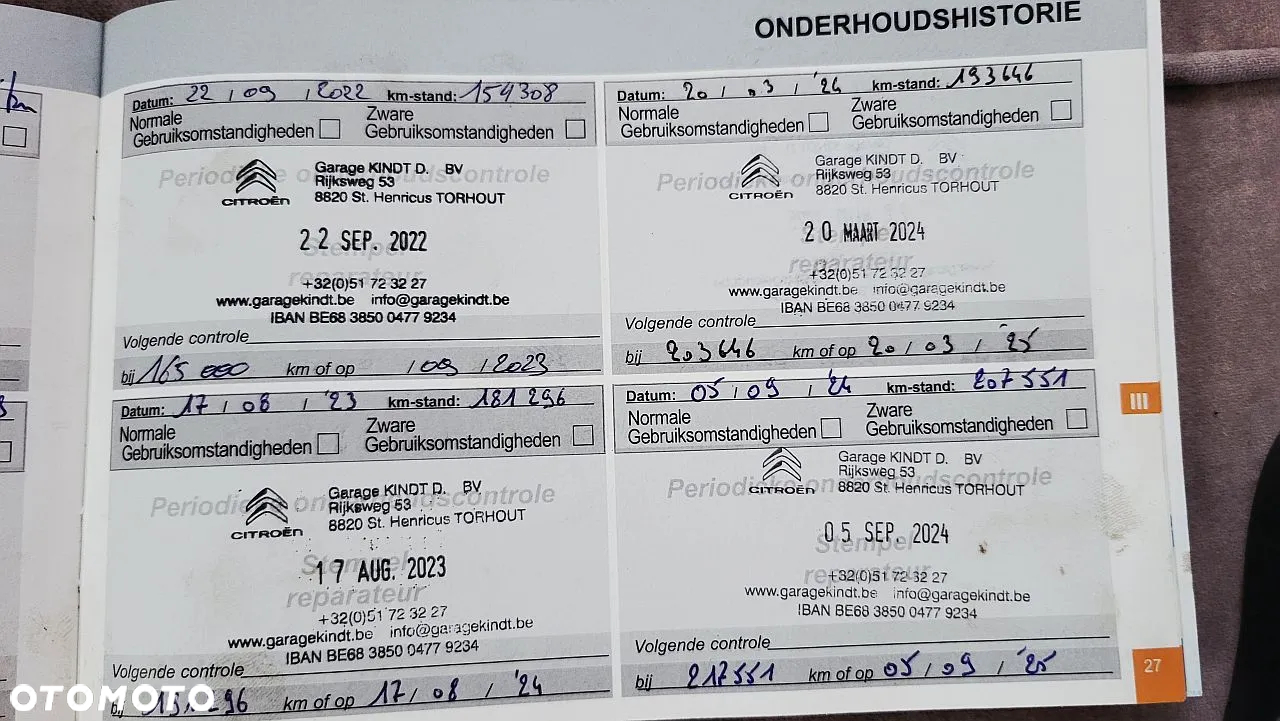 ONDERHOUDSHISTORIE
Datum: 22 / 09 / 2022 km-stand: 154308
Normale Gebruiksomstandigheden
Zware Gebruiksomstandigheden
Periodieke onderhoudscontrole
CITROËN
Garage KINDT D. BV
Rijksweg 53
8820 St. Henricus TORHOUT
22 SEP. 2022
Stempel
reparateur
+32(0)51 72 32 27
www.garagekindt.be info@garagekindt.be
IBAN BE68 3850 0477 9234
Volgende controle
bij 165 000 km of op / 09 / 2023
Datum: 17 / 08 / '23 km-stand: 181 296
Normale Gebruiksomstandigheden
Zware Gebruiksomstandigheden
Periodieke onderhoudscontrole
CITROËN
Garage KINDT D. BV
Rijksweg 53
8820 St. Henricus TORHOUT
17 AUG. 2023
Stempel
reparateur
+32(0)51 72 32 27
www.garagekindt.be info@garagekindt.be
IBAN BE68 3850 0477 9234
Volgende controle
km of op 17 / 08 / '24
Datum: 20 / 03 / '24 km-stand: 193646
Normale Gebruiksomstandigheden
Zware Gebruiksomstandigheden
Periodieke onderhoudscontrole
CITROËN
Garage KINDT D. BV
Rijksweg 53
8820 St. Henricus TORHOUT
20 MAART 2024
Stempel
reparateur
+32(0)51 72 32 27
www.garagekindt.be info@garagekindt.be
IBAN BE68 3850 0477 9234
Volgende controle
bij 203646 km of op 20 / 03 / '25
Datum: 05 / 09 / '24 km-stand: 207551
Normale Gebruiksomstandigheden
Zware Gebruiksomstandigheden
Periodieke onderhoudscontrole
CITROËN
Garage KINDT D. BV
Rijksweg 53
8820 St. Henricus TORHOUT
05 SEP. 2024
Stempel
reparateur
+32(0)51 72 32 27
www.garagekindt.be info@garagekindt.be
IBAN BE68 3850 0477 9234
Volgende controle
bij 217551 km of op 05 / 09 / '25
III
27
OTOMOTO